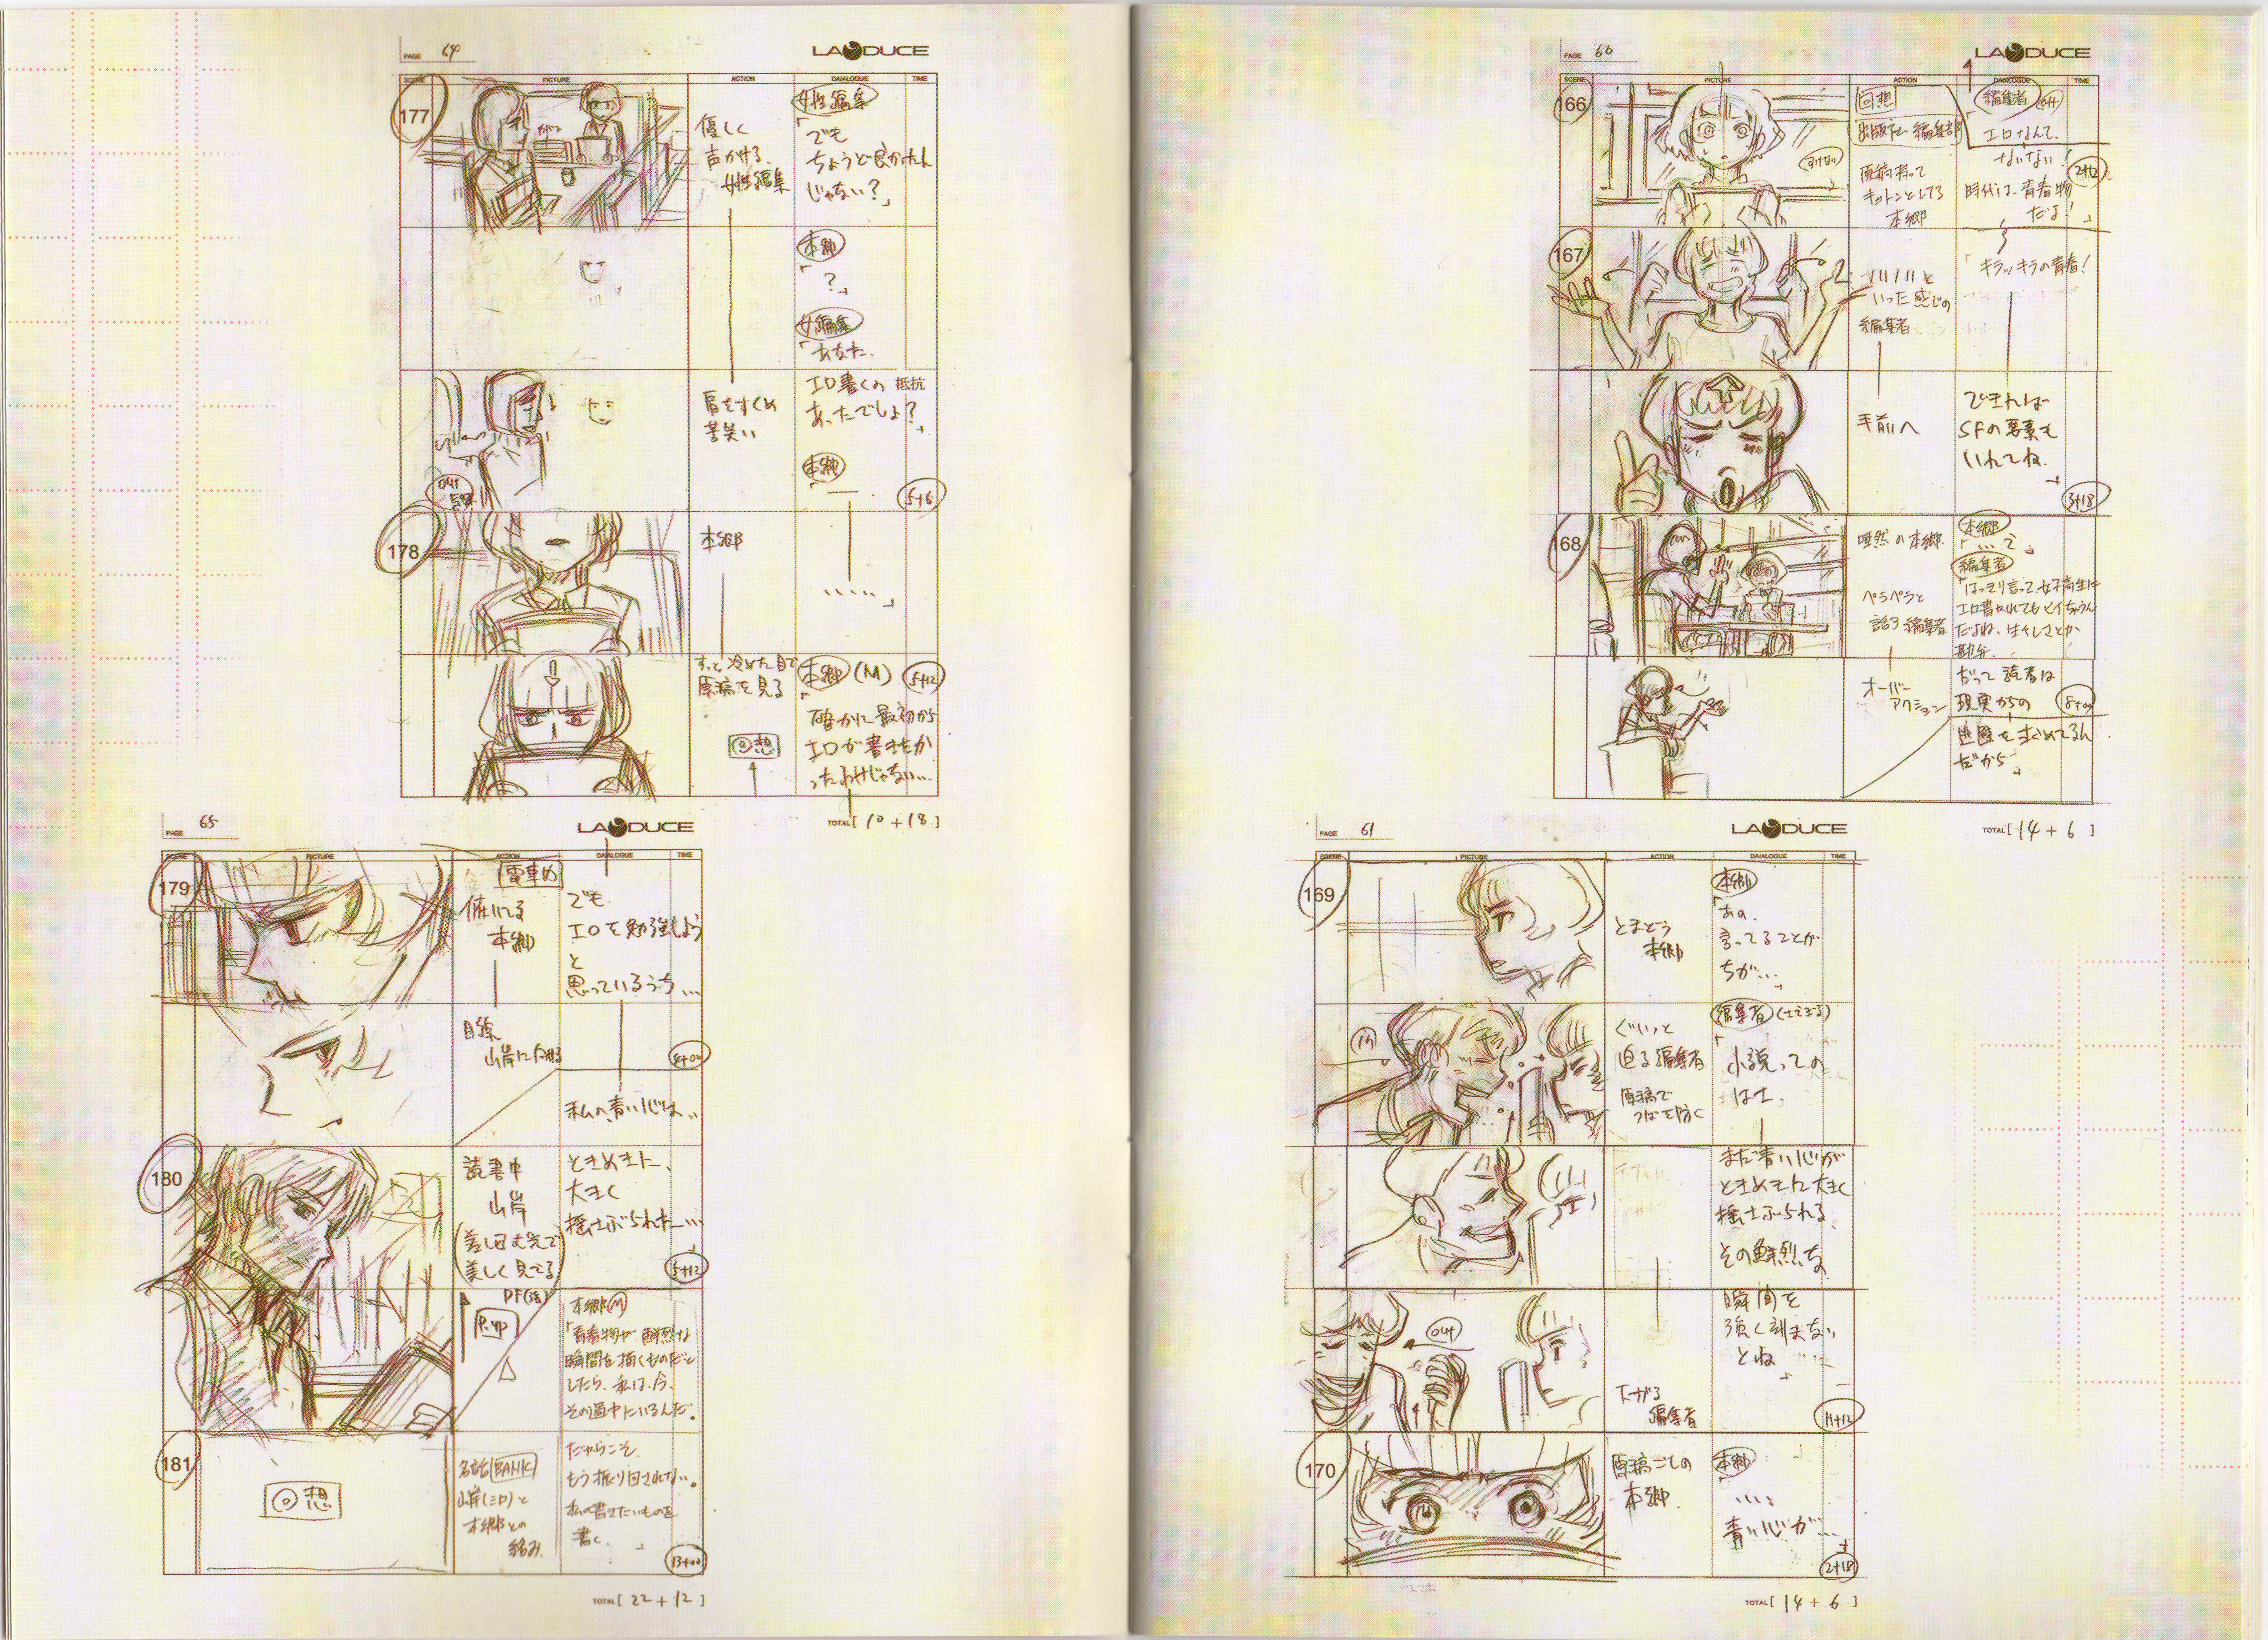 PAGE 60
LA DUCE
SCENE PICTURE ACTION DAIALOGUE TIME
166
回想
出版社 編集部
原稿持って
キョトンとしてる
本郷
編集者 off
「エロなんて、
ないない!
時代は、青春物
だよ!」
2+12
167
ハハハハと
いった感じの
編集者
「キラッキラの青春!
手前へ
できれば
SFの要素も
いれてね。」
3+18
168
唖然の本郷
ペラペラと
話す編集者
本郷
「…で」
編集者
「はっきり言って、女子高生に
エロ書かれてもヒイちゃうん
だよね、生々しさとか
勘弁。
オーバー
アクション
だって 読者は
現実からの
逃避を求めてるん
だから」
8+00
TOTAL [ 14 + 6 ]
PAGE 61
LA DUCE
SCENE PICTURE ACTION DAIALOGUE TIME
169
とまどう
本郷
本郷
「あの、
言ってることが
ちが…」
IN
ぐいっと
迫る編集者
原稿で
つばを防ぐ
編集者 (さえぎる)
「小説っての
はさ、
まだ青い心が
ときめきに大きく
揺さぶられる、
その鮮烈な
out
下がる
編集者
瞬間を
強く刻まない
とね…」
11+12
170
原稿ごしの
本郷
本郷
「……
青い心が…」
2+18
TOTAL [ 14 + 6 ]
PAGE 64
LA DUCE
SCENE PICTURE ACTION DAIALOGUE TIME
177
優しく
声かける、
女性編集
女性編集
「でも
ちょうど良かったん
じゃない?」
本郷
「?」
女編集
「あなた、
肩をすくめ
苦笑い
エロ書くの 抵抗
あったでしょ?」
本郷
「―
out
5+6
178
本郷
……」
すっと冷めた目で
原稿を見る
回想
本郷 (M)
「確かに最初から
エロが書きたか
ったわけじゃない…
5+12
TOTAL [ 10 + 18 ]
PAGE 65
LA DUCE
SCENE PICTURE ACTION DAIALOGUE TIME
179
電車内
俯いてる
本郷
でも、
エロを勉強しよう
と
思っているうち…
目線
山岸に向ける
4+00
私の青い心は…
180
読書中
山岸
(差し込む光で
美しく見てる)
ときめきに、
大きく
揺さぶられた…
5+12
P.up
本郷(M)
「青春物が鮮烈な
瞬間を描くものだと
したら、私は、今、
その途中にいるんだ。
181
回想
BANK
山岸(ミロ)と
本郷との
絡み
だからこそ、
もう振り回されない。
私の書きたいものを
書く。」
13+00
TOTAL [ 22 + 12 ]